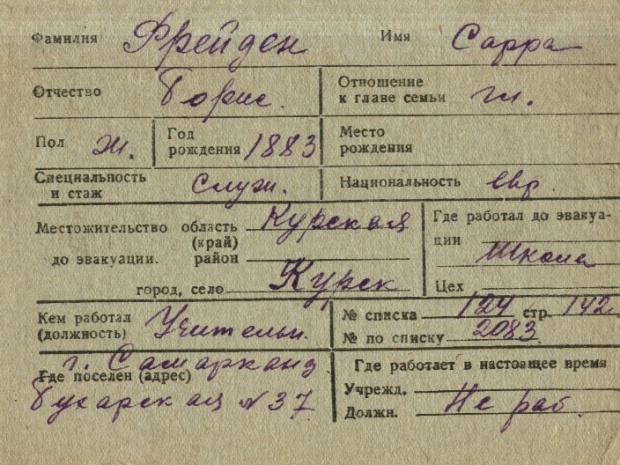 Фамилия Фрейден Имя Сарра
Отчество Борис. Отношение к главе семьи гл.
Пол Ж. Год рождения 1883 Место рождения
Специальность и стаж Служ. Национальность евр.
Местожительство область Курская Где работал до эвакуа-
(край) ции Школа
до эвакуации. район
город, село Курск Цех
Кем работал (должность) Учительн. № списка 124 стр. 142
№ по списку 2083.
г. Самарканд Где работает в настоящее время
Где поселен (адрес) Учрежд.
Бухарская № 37 Должн. Не раб.